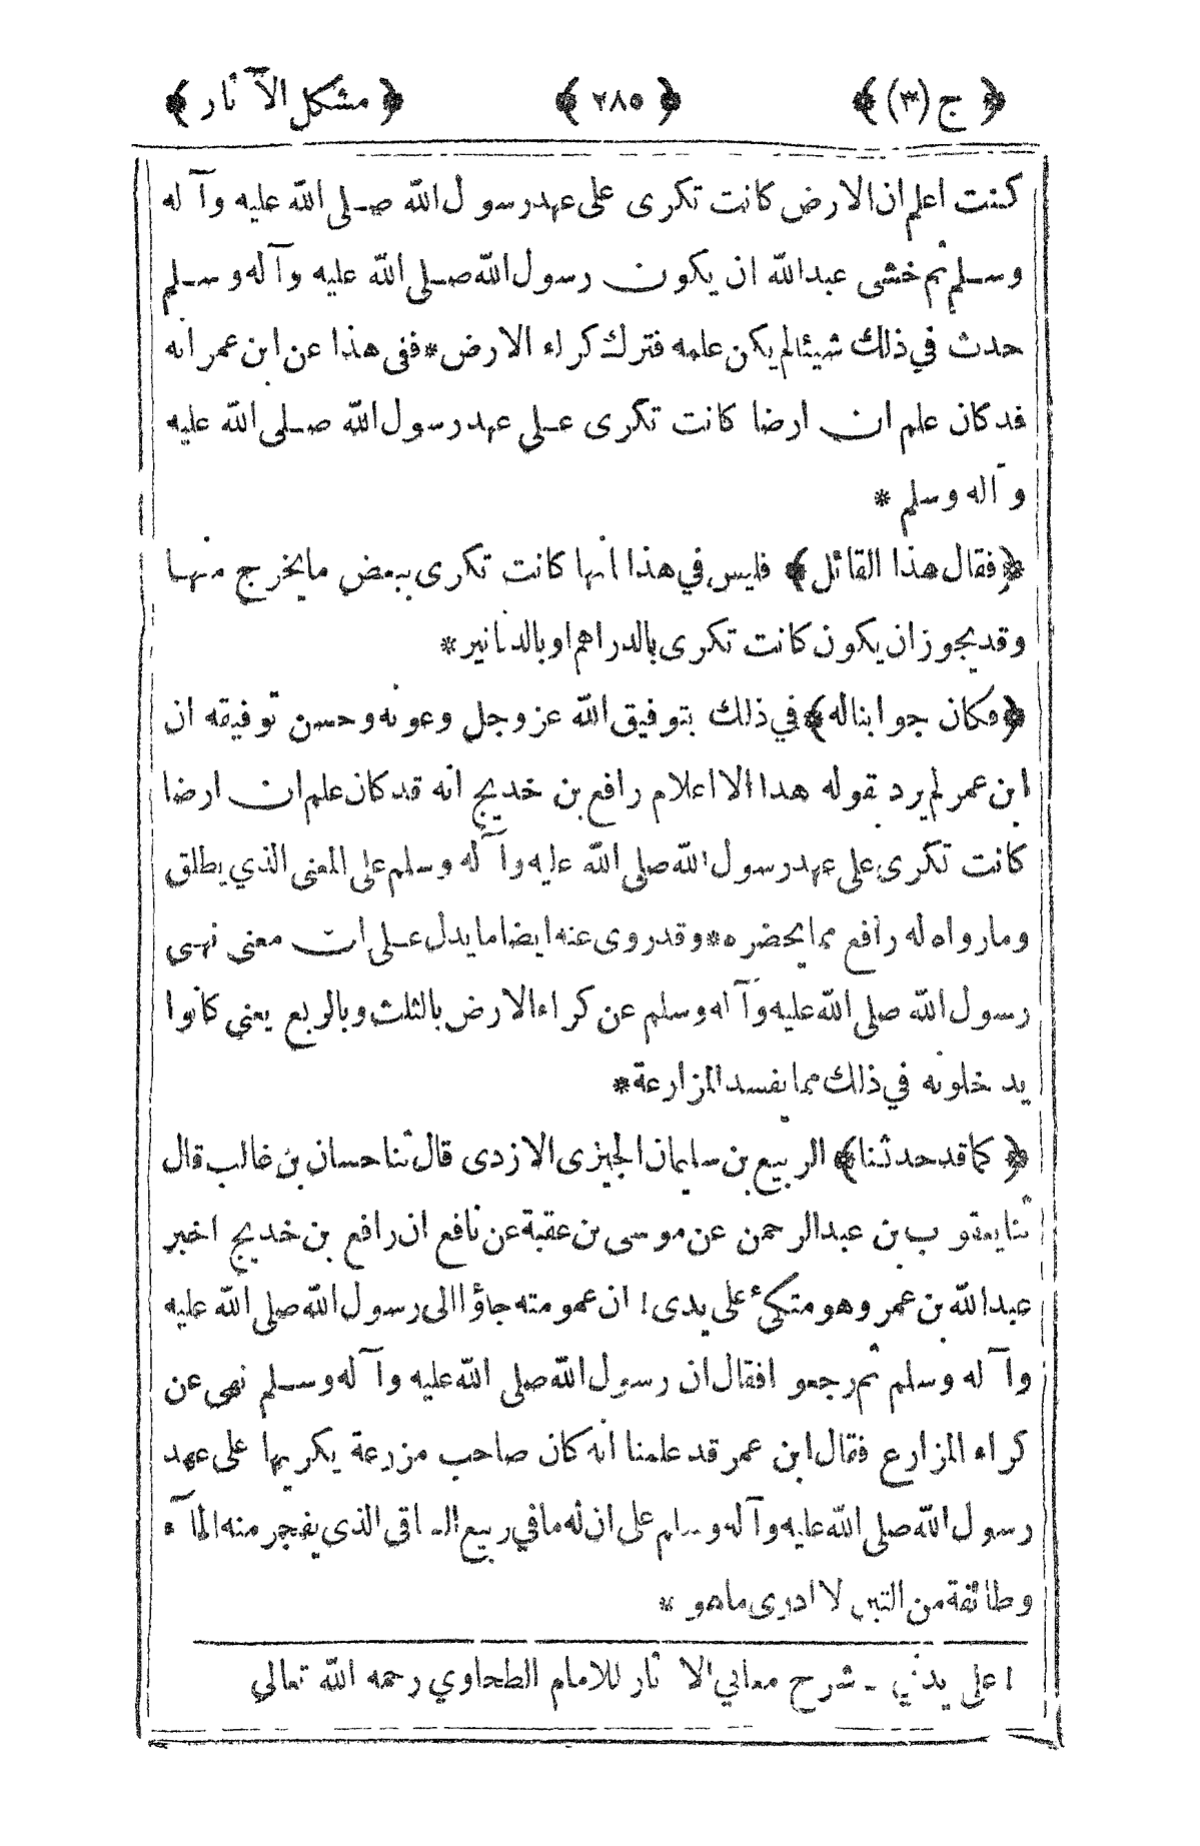 ﴿ ج (٣) ﴾ ﴿ ٢٨٥ ﴾ ﴿ مشكل الآثار ﴾
كنت اعلم ان الارض كانت تكرى على عهد رسول الله صلى الله عليه وآله
وسلم ثم خشى عبدالله ان يكون رسول الله صلى الله عليه وآله وسلم
حدث في ذلك شيئا لم يكن علمه فترك كراء الارض * ففى هذا عن ابن عمر انه
قد كان علم ان ارضا كانت تكرى على عهد رسول الله صلى الله عليه
وآله وسلم *
﴿ فقال هذا القائل ﴾ فليس في هذا انها كانت تكرى ببعض ما يخرج منها
وقد يجوز ان يكون كانت تكرى بالدراهم او بالدنانير *
﴿ فكان جوابنا له ﴾ في ذلك بتوفيق الله عز وجل وعونه وحسن توفيقه ان
ابن عمر لم يرد بقوله هذا الا اعلام رافع بن خديج انه قد كان علم ان ارضا
كانت تكرى على عهد رسول الله صلى الله عليه وآله وسلم على المعنى الذي يطلق
وما رواه له رافع مما يحضره * وقد روى عنه ايضا ما يدل على ان معنى نهى
رسول الله صلى الله عليه وآله وسلم عن كراء الارض بالثلث وبالربع يعني كانوا
يدخلونه في ذلك مما يفسد المزارعة *
﴿ كما قد حدثنا ﴾ الربيع بن سليمان الجيزى الازدى قال ثنا حسان بن غالب قال
ثنا يعقوب بن عبدالرحمن عن موسى بن عقبة عن نافع ان رافع بن خديج اخبر
عبدالله بن عمر وهو متكئ على يدى ١ ان عمومته جاؤا الى رسول الله صلى الله عليه
وآله وسلم ثم رجعوا فقال ان رسول الله صلى الله عليه وآله وسلم نهى عن
كراء المزارع فقال ابن عمر قد علمنا انه كان صاحب مزرعة يكريها على عهد
رسول الله صلى الله عليه وآله وسلم على ان له ما في ربيع الساقى الذى يفجر منه الماء
وطائفة من التبن لا ادرى ما هو *
١ على يدي ـ شرح معاني الاثار للامام الطحاوي رحمه الله تعالى